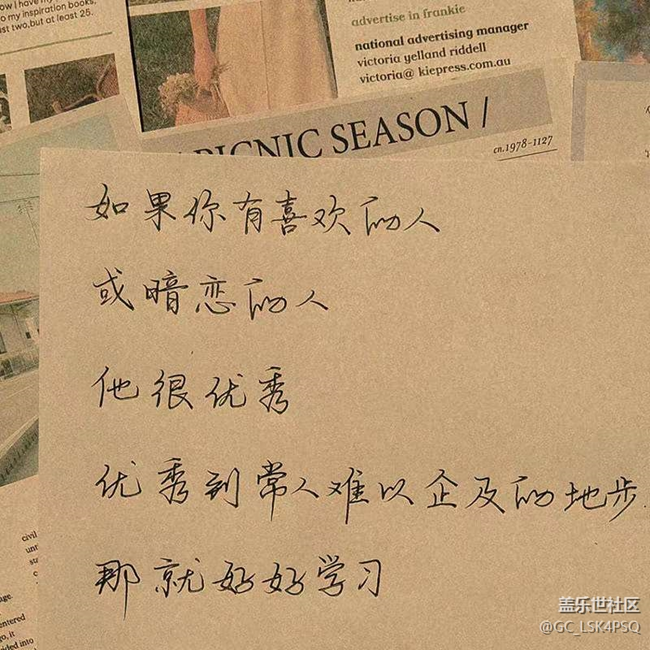 how I have my
o my inspiration books,
st two, but at least 25.
advertise in frankie
national advertising manager
victoria yelland riddell
victoria@ kiepress.com.au
PICNIC SEASON /
cn.1978-1127
如果你有喜欢的人
或暗恋的人
他很优秀
优秀到常人难以企及的地步
那就好好学习
civil
entered
go, it
ided into
盖乐世社区
@GC_LSK4PSQ